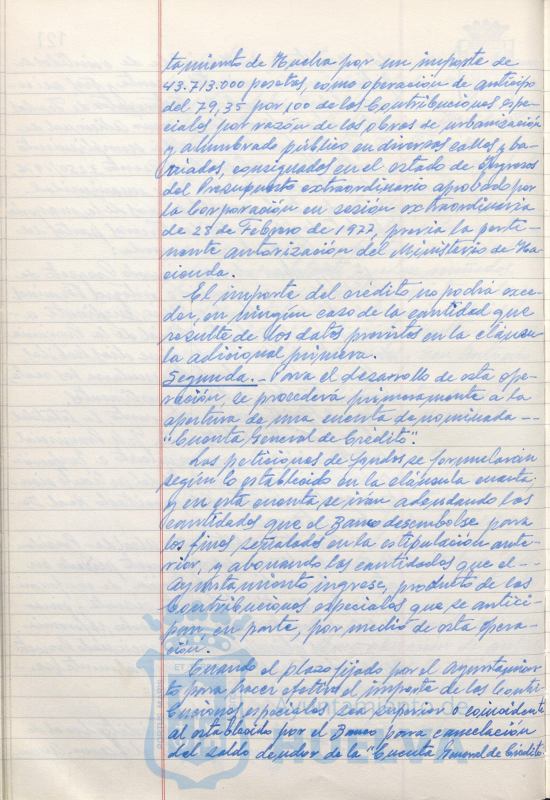 tamiento de Huelva por un importe de
43.713.000 pesetas, como operación de anticipo
del 79,35 por 100 de las Contribuciones espe-
ciales por razón de las obras de urbanización
y alumbrado público en diversas calles y ba-
rriadas, consignadas en el estado de Ingresos
del Presupuesto extraordinario aprobado por
la Corporación en sesión extraordinaria
de 28 de Febrero de 1977, previa la perti-
nente autorización del Ministerio de Ha-
cienda.
El importe del crédito no podrá exce-
der, en ningún caso de la cantidad que
resulte de los datos previstos en la cláusu-
la adicional primera.
Segunda.- Para el desarrollo de esta ope-
ración, se procederá primeramente a la
apertura de una cuenta denominada --
"Cuenta General de Crédito".
Las peticiones de fondos, se formularán
según lo establecido en la cláusula cuarta;
y en esta cuenta se irán adeudando las
cantidades que el Banco desembolse para
los fines señalados en la estipulación ante-
rior, y abonando las cantidades que el --
Ayuntamiento ingrese, producto de las
Contribuciones especiales que se antici-
pan en parte, por medio de esta opera-
ción.
Cuando el plazo fijado por el Ayuntamien-
to para hacer efectivo el importe de las Contri-
buciones especiales sea superior o coincidente
al establecido por el Banco para cancelación
del saldo deudor de la "Cuenta General de Crédito
Ayuntamiento de
HUELVA